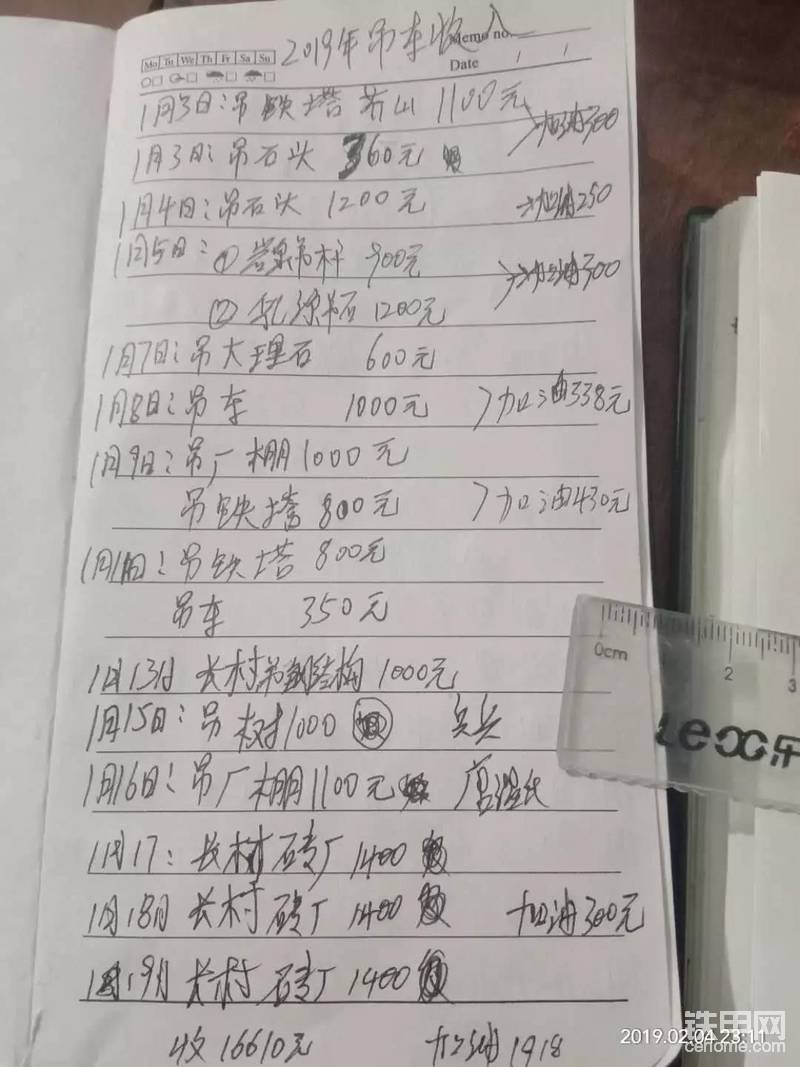 2019年吊车收入
Memo no.
Mo Tu We Th Fr Sa Su
Date / /
1月3日：吊铁塔 1100元 >加油300
1月3日：吊石头 360元
1月4日：吊石头 1200元 →加油250
1月5日：① 吊杆 900元 >加油300
② 吊石 1200元
1月7日：吊大理石 600元
1月8日：吊车 1000元 >加油338元
1月9日：吊厂棚1000元
吊铁塔 800元 >加油430元
吊铁塔 800元
吊车 350元
1月13日 长村吊钢结构 1000元
1月15日：吊树1000 兵兵
1月16日：吊厂棚1100元
1月17：长村砖厂1400
1月18日 长村砖厂1400 加油300元
19日 长村砖厂1400
收16610元 加油1918
0cm 2 3
铁甲网
cehome.com
2019.02.04 23:11